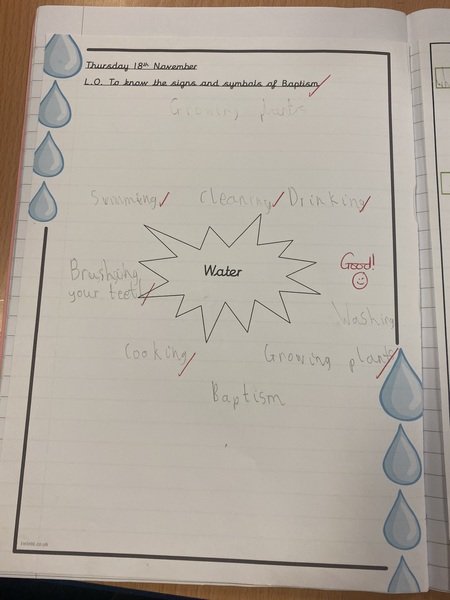 Thursday 18th November
L.O. To know the signs and symbols of Baptism
Growing plants
Swimming
Cleaning
Drinking
Brushing
your teeth
Water
Good!
Washing
Cooking
Growing plants
Baptism